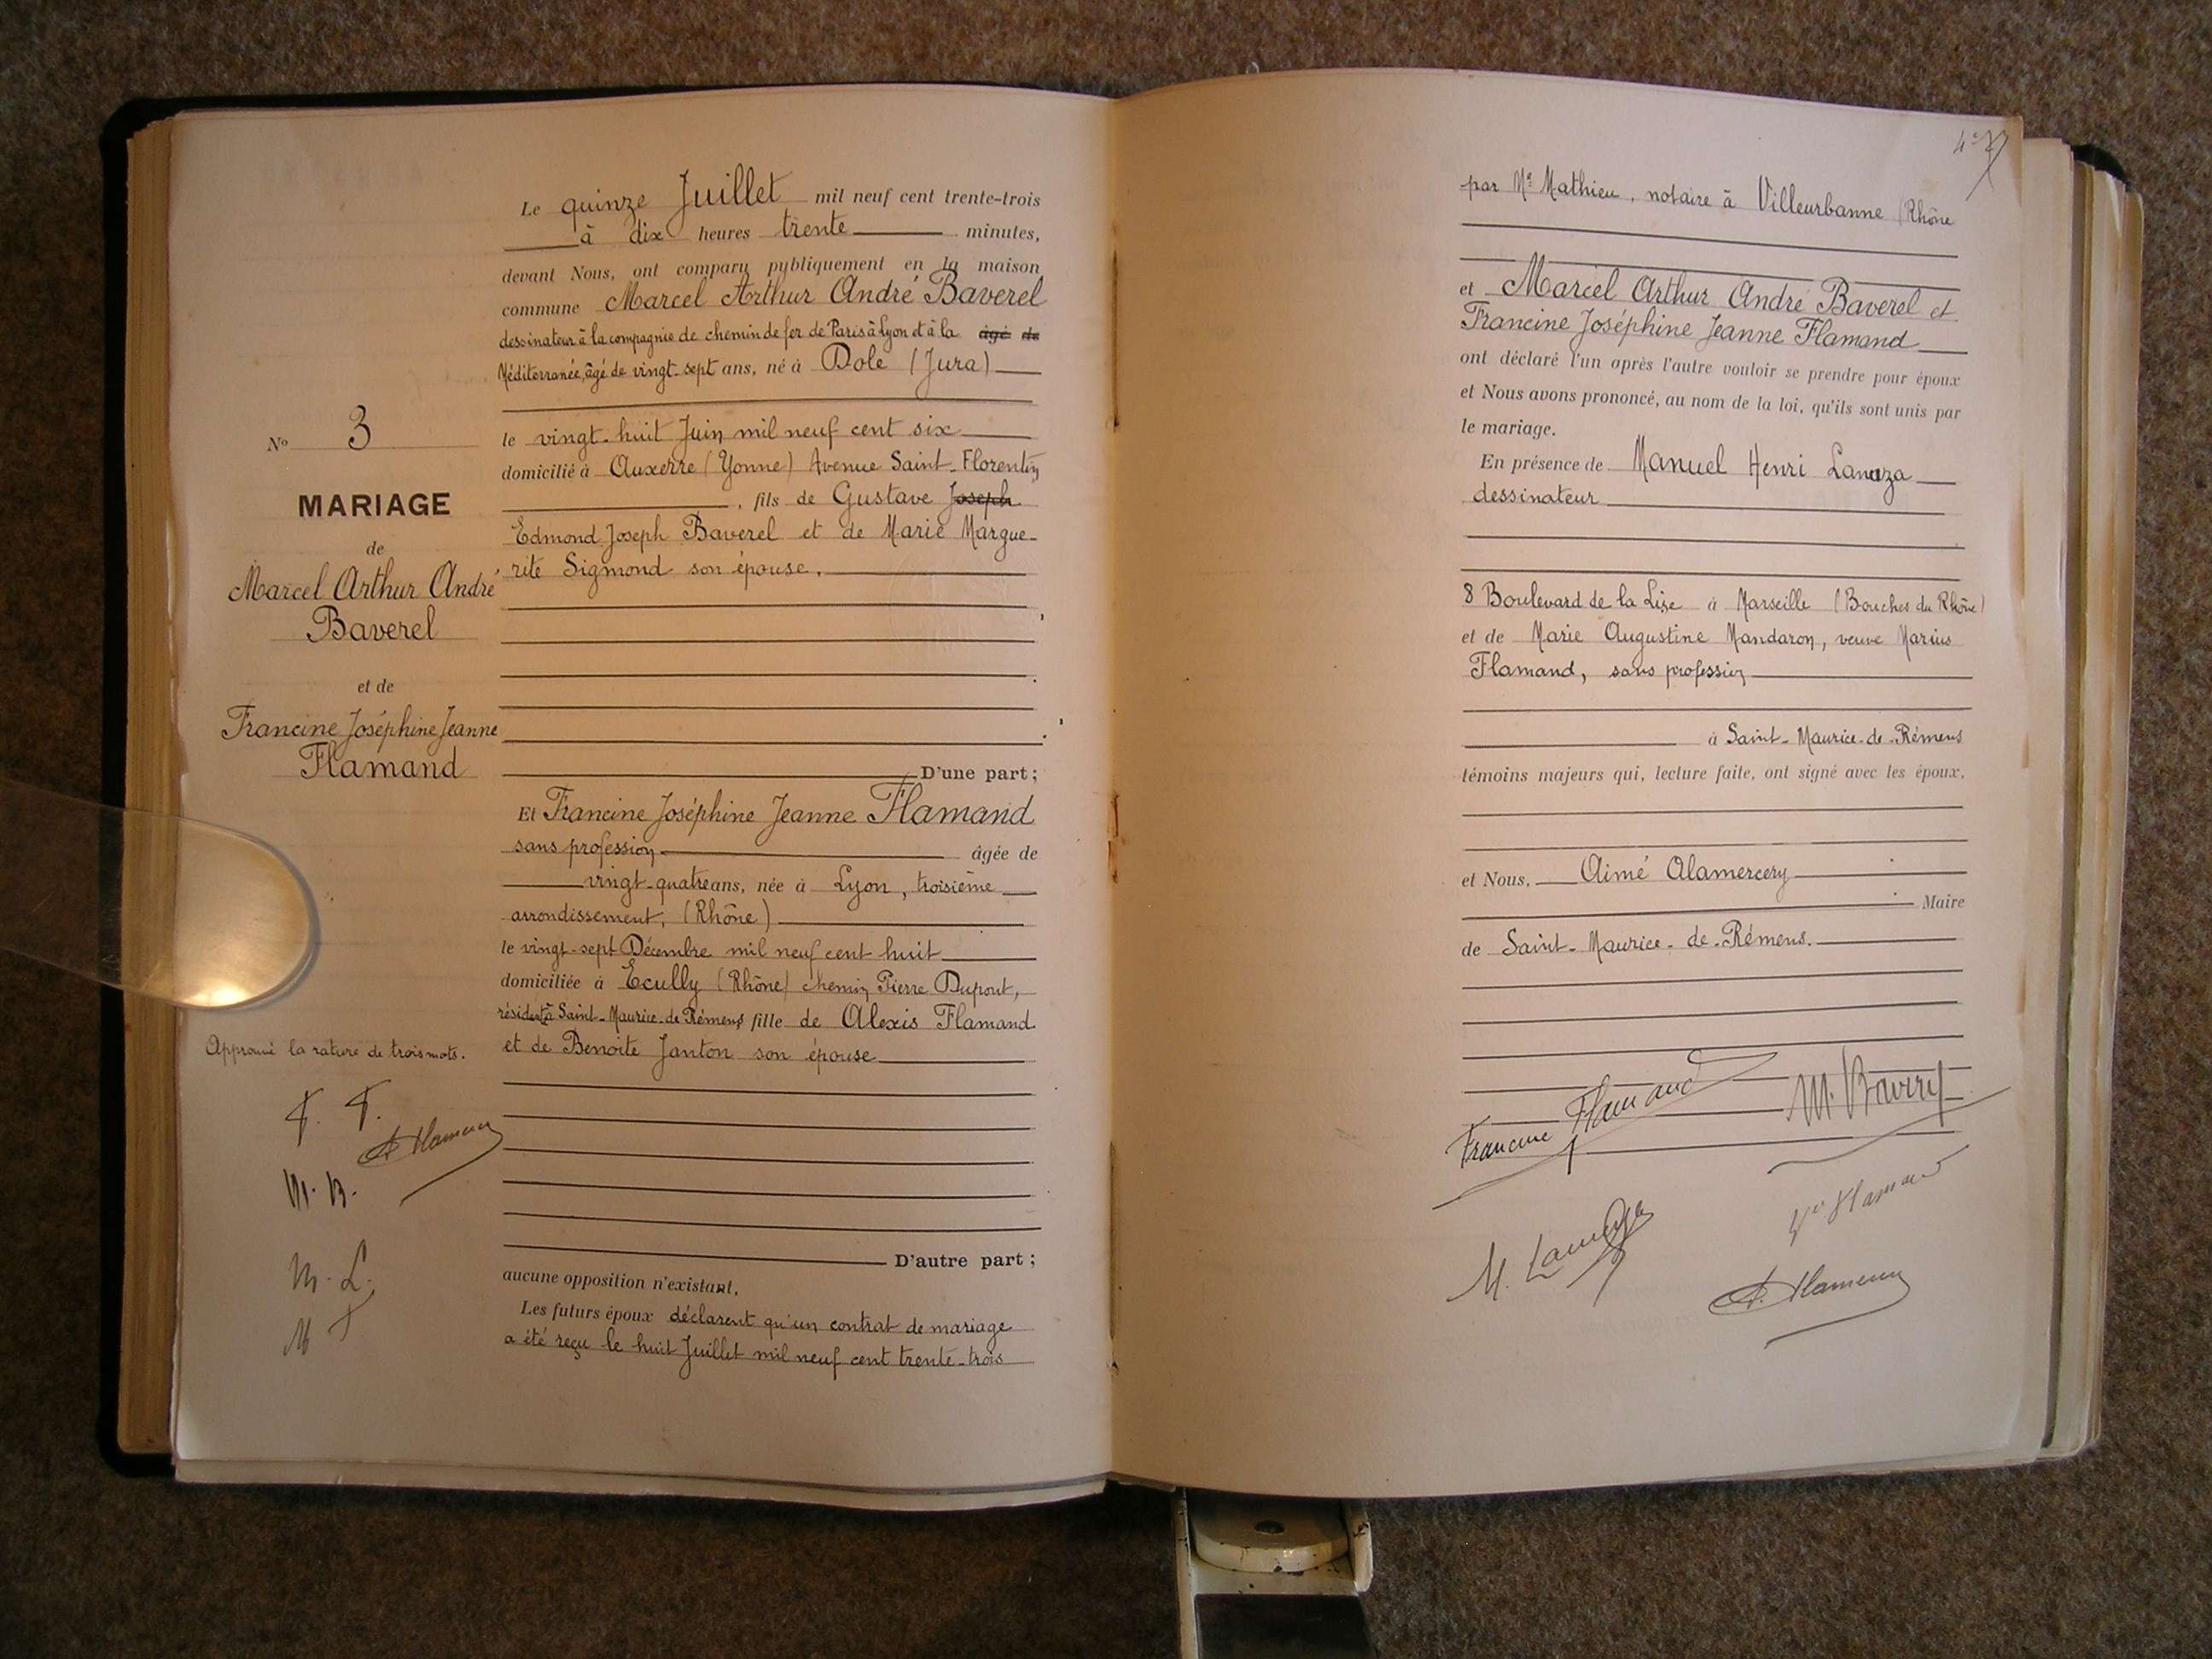 N° 3
MARIAGE
de
Marcel Arthur André
Baverel
et de
Francine Joséphine Jeanne
Flamand
Approuvé la rature de trois mots.
F. F.
M. B.
M. L.
Le quinze Juillet mil neuf cent trente-trois
à dix heures trente minutes,
devant Nous, ont comparu publiquement en la maison
commune Marcel Arthur André Baverel
dessinateur à la compagnie de chemin de fer de Paris à Lyon et à la âgé de
Méditerranée, âgé de vingt-sept ans, né à Dole (Jura)
le vingt-huit Juin mil neuf cent six
domicilié à Auxerre (Yonne) Avenue Saint-Florentin
, fils de Gustave Joseph
Edmond Joseph Baverel et de Marie Margue-
rite Sigmond son épouse.
D'une part;
Et Francine Joséphine Jeanne Flamand
sans profession âgée de
vingt-quatre ans, née à Lyon, troisième
arrondissement, (Rhône)
le vingt-sept Décembre mil neuf cent huit
domiciliée à Ecully (Rhône) chemin Pierre Dupont,
résidant à Saint-Maurice-de-Rémens fille de Alexis Flamand
et de Benoite Janton son épouse
D'autre part;
aucune opposition n'existant,
Les futurs époux déclarent qu'un contrat de mariage
a été reçu le huit Juillet mil neuf cent trente-trois
par Me Mathieu, notaire à Villeurbanne (Rhône
et Marcel Arthur André Baverel et
Francine Joséphine Jeanne Flamand
ont déclaré l'un après l'autre vouloir se prendre pour époux
et Nous avons prononcé, au nom de la loi, qu'ils sont unis par
le mariage.
En présence de Manuel Henri
dessinateur
8 Boulevard de la Lise à Marseille (Bouches du Rhône)
et de Marie Augustine Mandaron, veuve Marius
Flamand, sans profession
à Saint-Maurice-de-Rémens
témoins majeurs qui, lecture faite, ont signé avec les époux,
et Nous, Aimé Alamercery
Maire
de Saint-Maurice-de-Rémens.
Francine Flamand
M. Baverel
Vve Flamand